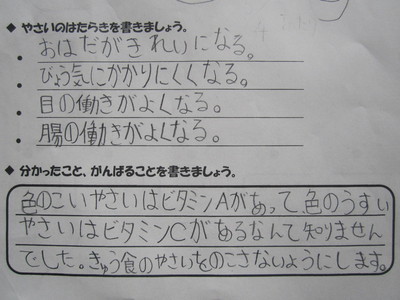 ◆ やさいのはたらきを書きましょう。
・おはだがきれいになる。
・びょう気にかかりにくくなる。
・目の働きがよくなる。
・腸の働きがよくなる。
◆ 分かったこと、がんばることを書きましょう。
色のこいやさいはビタミンAがあって、色のうすい
やさいはビタミンCがあるなんて知りません
でした。きゅう食のやさいをのこさないようにします。